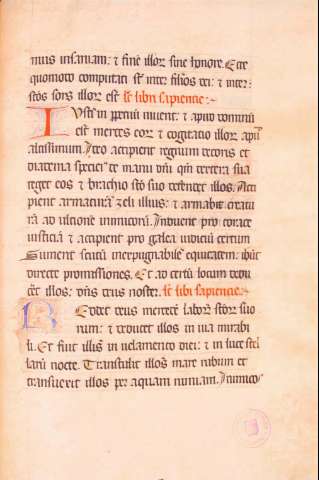 mus insaniam: ⁊ finē illoꝝ sine honore. Ecce
quomodo computati sūt inter filios dei: ⁊ inter
sc̄os sors illoꝝ est. lc̄ libri sapiencie:
Iusti in ppetuū vivent: ⁊ apud dominū
est merces eoꝝ ⁊ cogitatio illoꝝ apud
altissimum. Ideo accipient regnum decoris et
diadema speciei de manu dn̄i qm̄ dextera sua
teget eos ⁊ brachio sc̄o suo defendet illos. Acci
pient armaturā zeli illius: ⁊ armabit creatu
rā ad ultionē inimicoꝝ. Induent pro torace
iusticiā ⁊ accipient pro galea iudiciū certum
Sument scutū inexpugnabile equitatem: ibūt
directe promissiones. Et ad certū locum dedu
cet illos: dn̄s deus noster. lc̄ libi sapiencie.
Reddet deus mercedē laboꝝ sc̄oꝝ suo
rum: ⁊ deducet illos in via mirabi
li. Et fuit illis in velamento diei: ⁊ in luce stel
larū nocte. Transtulit illos mare rubrum et
transvexit illos per aquam nimiam. Inimicos